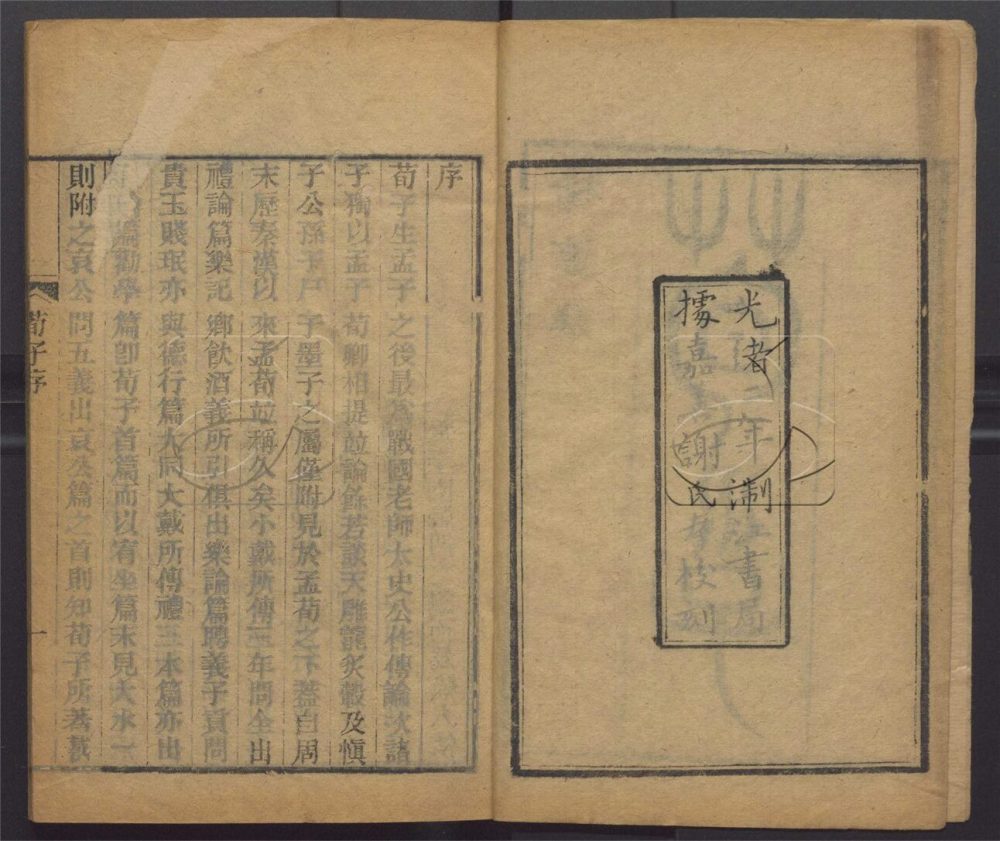 光者二年浙江書局制
據嘉善謝氏本校刻
序
荀子生孟子之後最為戰國老師太史公作傳論次諸
子獨以孟子荀卿相提並論餘若談天雕龍炙轂及慎
子公孫子尸子墨子之屬僅附見於孟荀之下蓋自周
末歷秦漢以來孟荀並稱久矣小戴所傳三年問全出
禮論篇樂記鄉飲酒義所引俱出樂論篇聘義子貢問
貴玉賤珉亦與德行篇大同大戴所傳禮三本篇亦出
篇勸學篇即荀子首篇而以宥坐篇末見大水一
則附之哀公問五義出哀公篇之首則知荀子所著載
荀子序
一